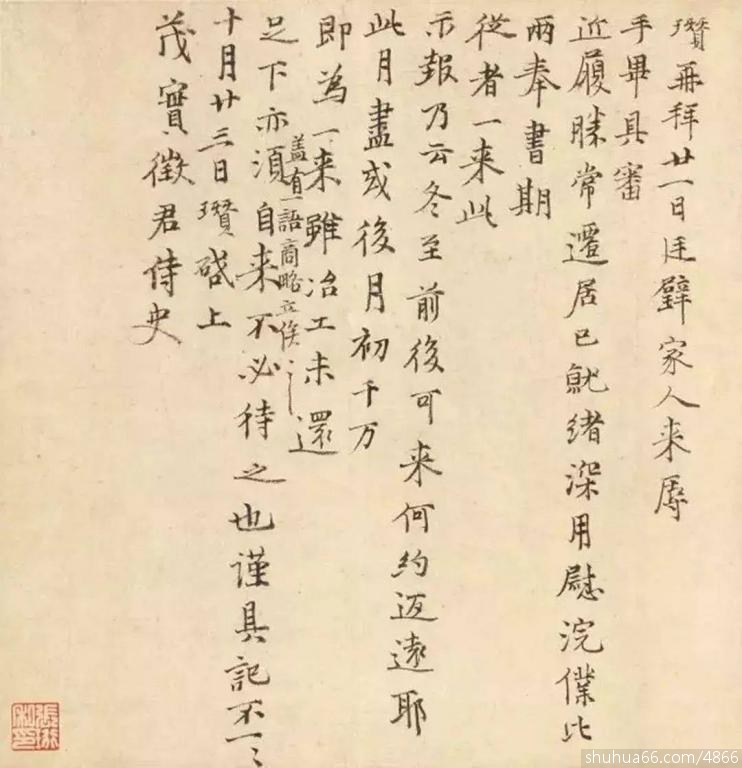 瓚再拜廿一日廷璧家人来辱
手畢具審
近履勝常遷居已就緒深用慰浣僕比
兩奉書期
從者一来此
示報乃云冬至前後可来何約迃遠耶
此月盡或後月初千万
即為一来雖冶工未還
盖有一語商略立俟之
足下亦須自来不必待之也謹具記不一〻
十月廿三日瓚啓上
茂實徵君侍史
shuhua66.com/4866